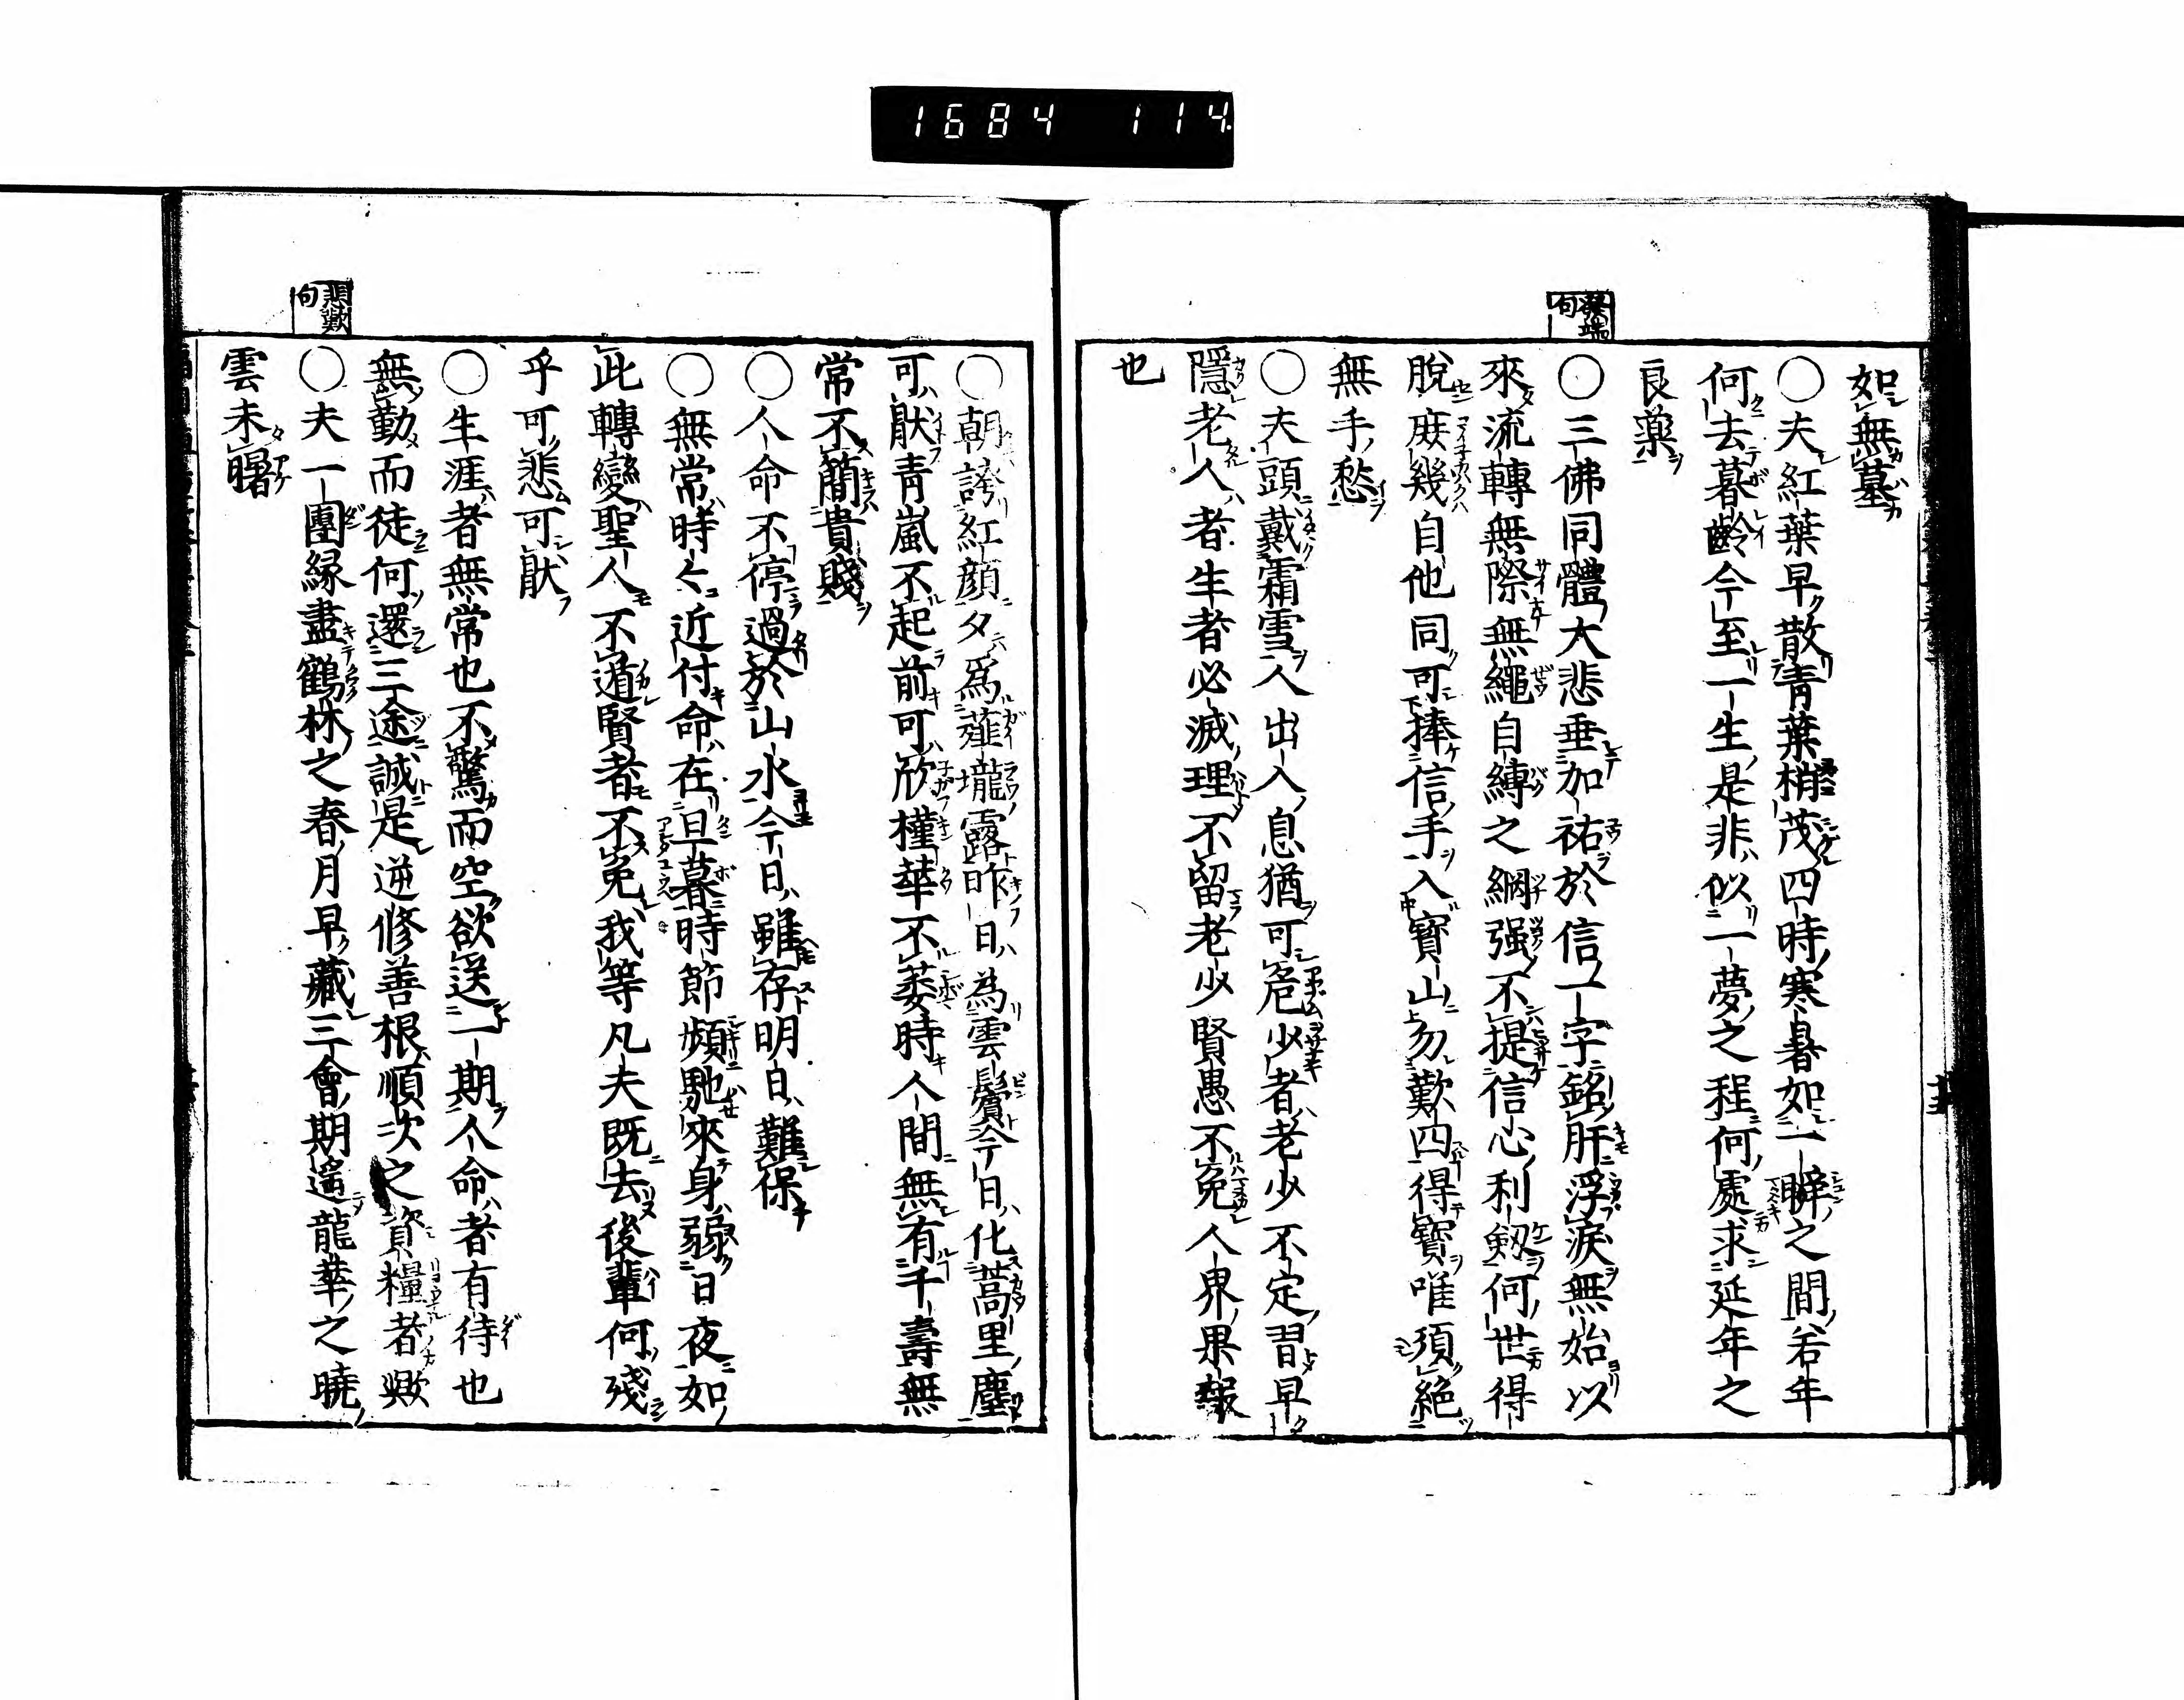 1684 114
如無墓
○夫紅葉早散青葉梢茂四時寒暑如一瞬之間若年
何去暮齡今至一生是非似一夢之程何處求延年之
良藥
發端句
○三佛同體大悲垂加祐於信一字銘肝浮淚無始以
來流轉無際無繩自縛之綱强不提信心利劔何世得
脫庶幾自他同可捧信手入寳山勿歎四得寳唯須絶
無手愁
○夫頭戴霜雪人出入息猶可危少者老少不定習早
隱老人者生者必滅理不留老少賢愚不免人界果報
也
○朝誇紅顔夕爲薤壠露昨日為雲鬢今日化蒿里塵
可猒靑嵐不起前可欣槿華不萎時人間無有千壽無
常不簡貴賤
○人命不停過於山水今日雖存明日難保
○無常時々近付命在旦暮時節頻馳來身弱日夜如
此轉變聖人不遁賢者不免我等凡夫既去後輩何殘
乎可悲可猒
○生涯者無常也不驚而空欲送一期人命者有待也
無勤而徒何還三途誠是逆修善根順次之資糧者歟
悲歎句
○夫一團緣盡鶴林之春月早藏三會期遙龍華之曉
雲未曙